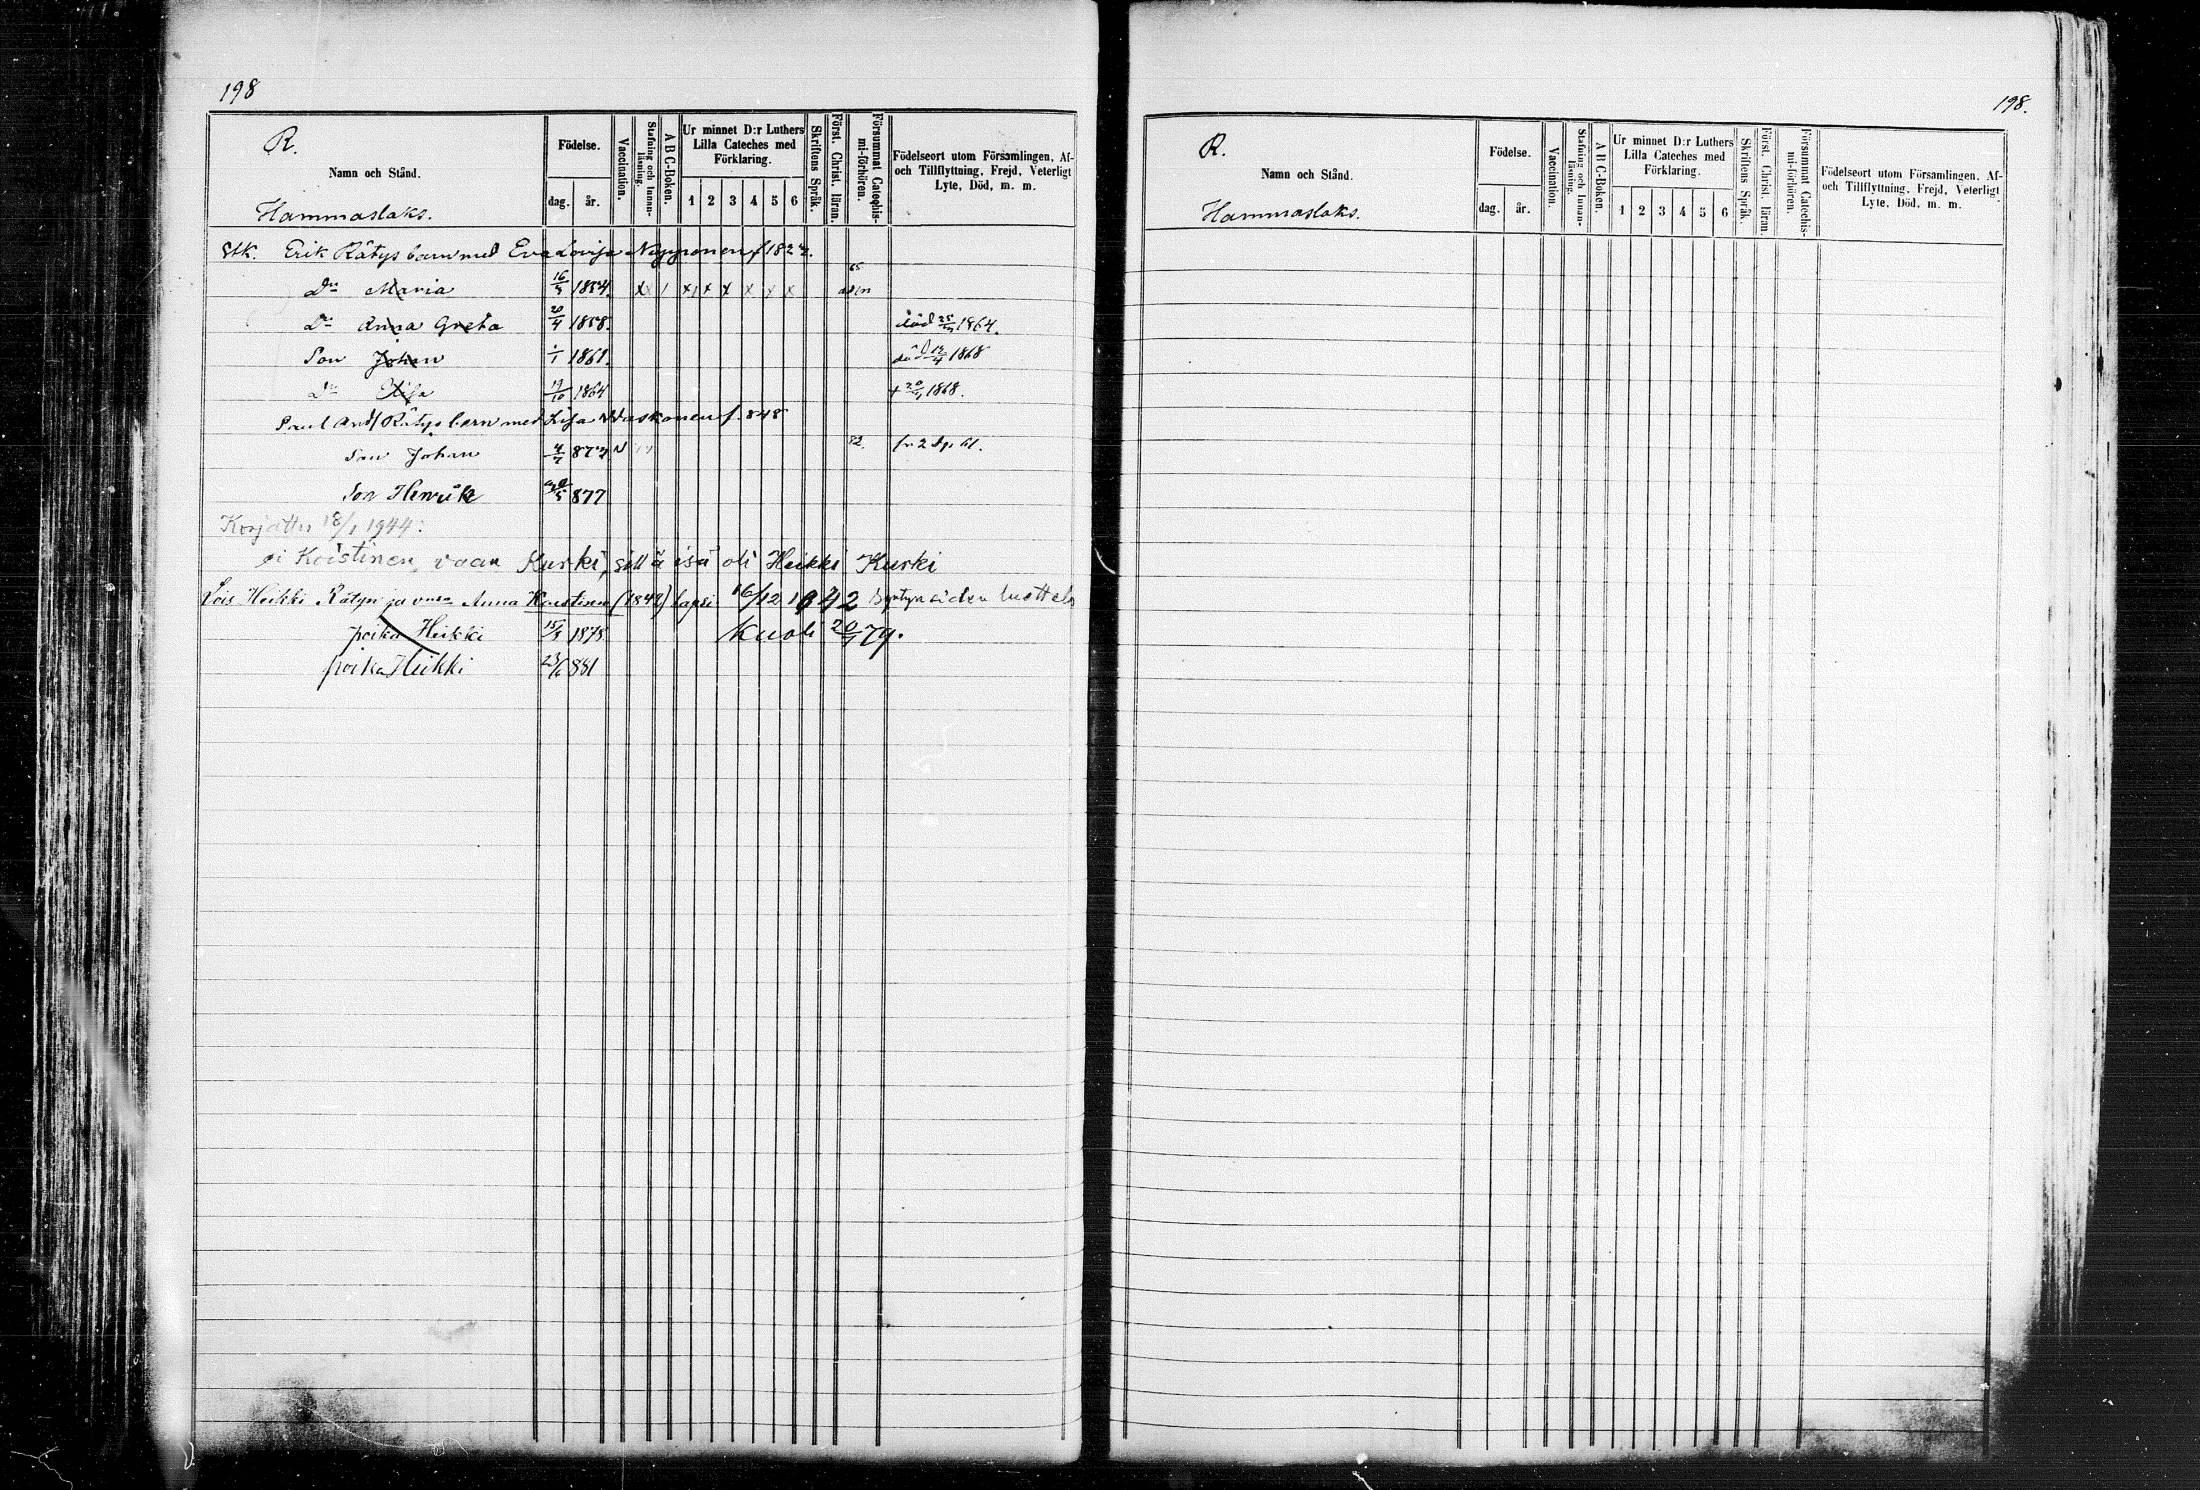 198
R.
Namn och Stånd.
Hammaslaks.
Födelse.
dag. år.
Vaccination.
Stafning och Innan-läsning.
A B C-Boken.
Ur minnet D:r Luthers
Lilla Cateches med
Förklaring.
1 2 3 4 5 6
Skriftens Språk.
Först. Christ. läran.
Försummat Catechis-mi-förhören.
Födelseort utom Församlingen, Af-
och Tillflyttning, Frejd, Veterligt
Lyte, Död, m. m.
Erik Rätys barn med Eva Lovisa
Dr Maria 1854.
Dr Anna Greta 20/4 1858. död 1864.
Son Johan 1/1 1861. död 1868
Dr 1864 1868.
Rätys barn med Lisa f. 848
Son Johan
Son Henrik 877
Korjattu 18/1 1944:
ei Koistinen, vaan Kurki, sillä isä oli Heikki Kurki
Lois. Heikki Rätyn ja Anna lapsi 16/12 1942
poika Heikki 1878. Kuoli 79.
poika Heikki 23/6 881
198.
R.
Namn och Stånd.
Hammaslaks.
Födelse.
dag. år.
Vaccination.
Stafning och Innan-läsning.
A B C-Boken.
Ur minnet D:r Luthers
Lilla Cateches med
Förklaring.
1 2 3 4 5 6
Skriftens Språk.
Först. Christ. läran.
Försummat Catechis-mi-förhören.
Födelseort utom Församlingen, Af-
och Tillflyttning, Frejd, Veterligt
Lyte, Död, m. m.